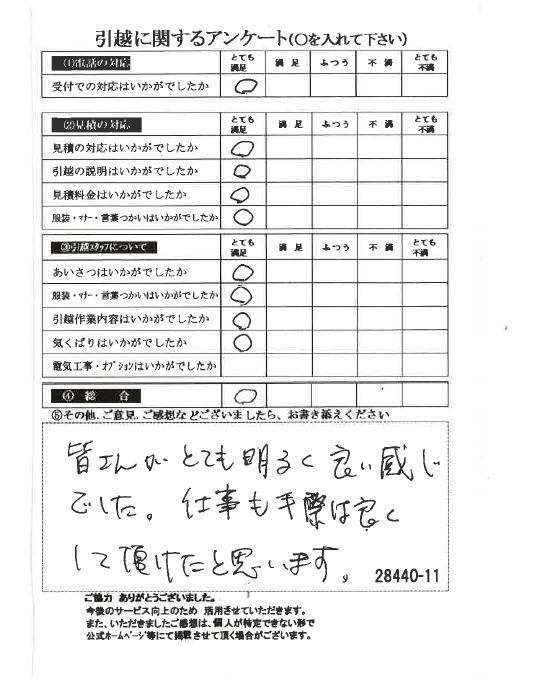 引越に関するアンケート(〇を入れて下さい)
(1)電話の対応 とても満足 満足 ふつう 不満 とても不満
受付での対応はいかがでしたか
(2)見積の対応 とても満足 満足 ふつう 不満 とても不満
見積の対応はいかがでしたか
引越の説明はいかがでしたか
見積料金はいかがでしたか
服装・マナー・言葉つかいはいかがでしたか
(3)引越スタッフについて とても満足 満足 ふつう 不満 とても不満
あいさつはいかがでしたか
服装・マナー・言葉つかいはいかがでしたか
引越作業内容はいかがでしたか
気くばりはいかがでしたか
電気工事・オプションはいかがでしたか
④ 総合
⑤その他.ご意見.ご感想などございましたら、お書き添えください
皆さんがとても明るく良い感じ
でした。仕事も手際は良く
して頂けたと思います。
28440-11
ご協力 ありがとうございました。
今後のサービス向上のため 活用させていただきます。
また、いただきましたご感想は、個人が特定できない形で
公式ホームページ等にて掲載させて頂く場合がございます。